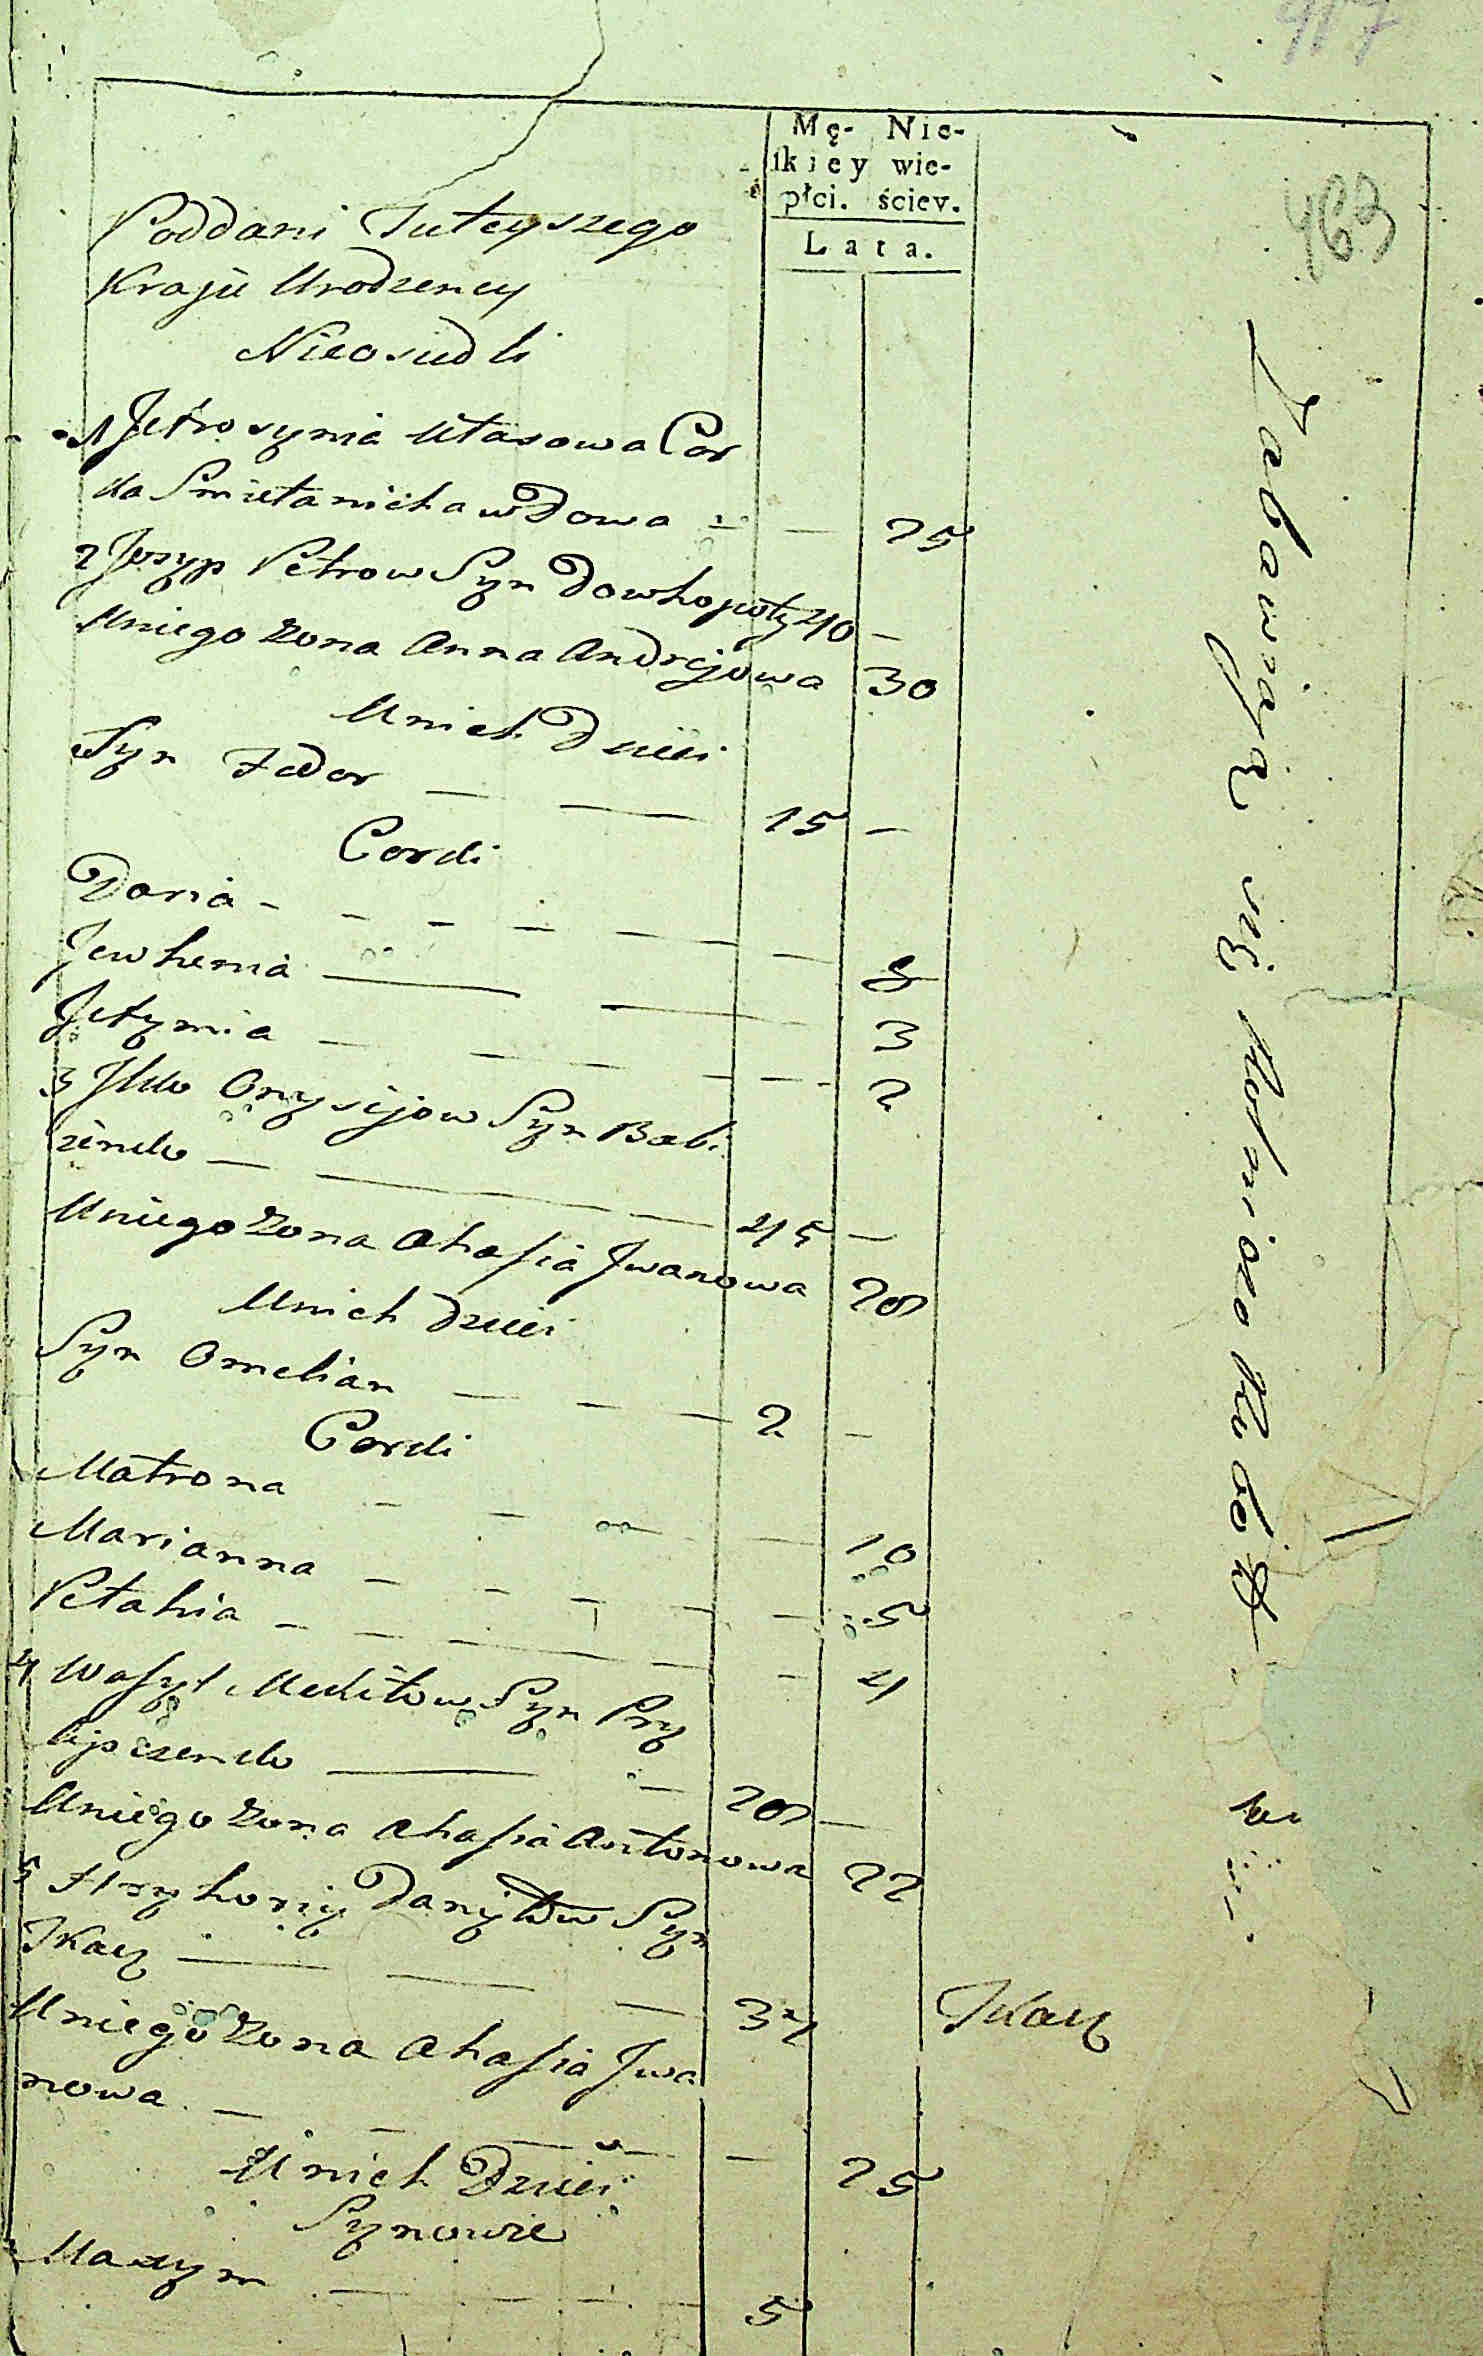 463
Mę- Nie-
skiey wie-
płci. ściey.
Lata.
Poddani Tuteyszego
Kraju Urodzency
Nieosiedli
1 Jefrosynia Utasowa Cor
ka Smietanicha wdowa — — 75
2 Josyp Petrow Syn Dowhopoły 40 —
Uniego Zona Anna Andrejowa 30
Unich Dzieci
Syn Fedor — — 15 —
Corki
Daria — — — — — — 8
Jewhenia — — — 3
Jefymia — — — — — 2
3 Ilko Onysijow Syn Babi
zenko — — — 45 —
Uniego Zona Ahafia Jwanowa 28
Unich Dzieci
Syn Omelian — — — 2 —
Corki
Matrona — — — — 10
Marianna — — — — — 5
Petahia — — — — — 4
4 Wasyl Mikitow Syn Pry
lipczenko — — 28 —
Uniego Zona Ahafia Antonowa 22
5 Hryhoriy Danyłow Syn
Tkacz — — — 34
Tkacz
Uniego Zona Ahafia Jwa
nowa — — — — — 25
Unich Dzieci
Synowie
Maxym — — — — 5
Zabawiają się Rolniczo Robotą